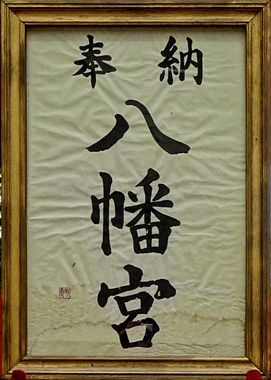 奉納
八幡宮